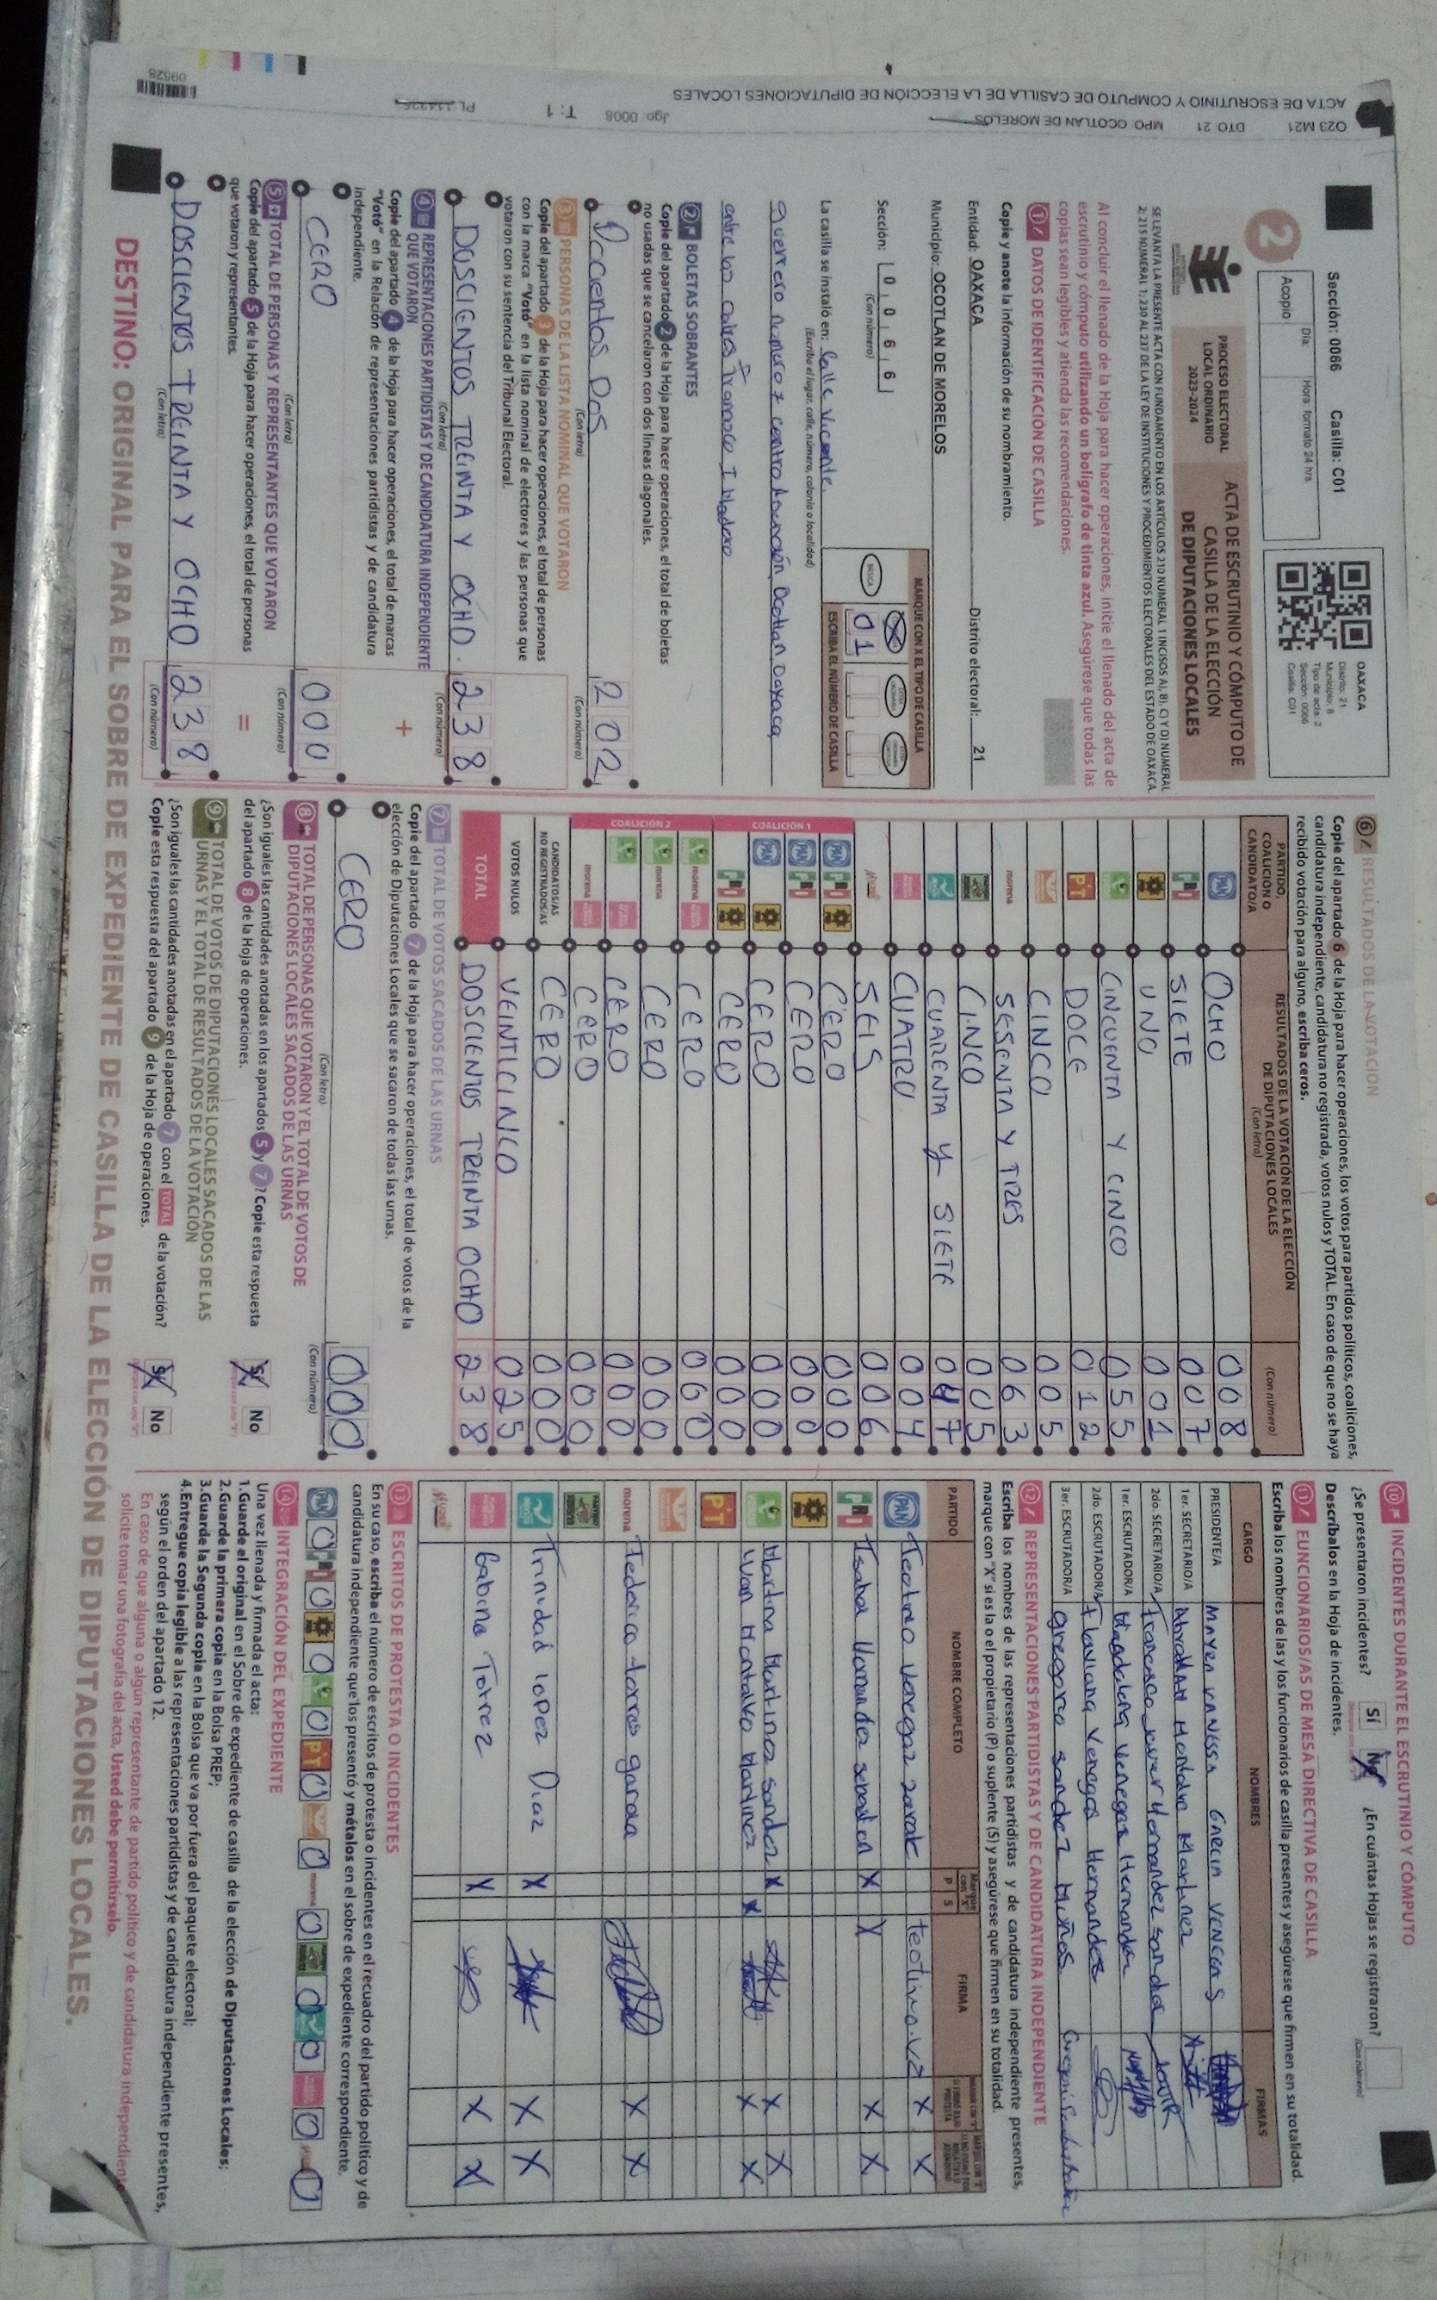 O23 M21 DTO. 21 MPO. OCOTLAN DE MORELOS
ACTA DE ESCRUTINIO Y CÓMPUTO DE CASILLA DE LA ELECCIÓN DE DIPUTACIONES LOCALES
Jgo. 0008 T: 1
09528
Sección: 0066 Casilla: C01
Día: Hora: formato 24 hrs
Acopio
OAXACA
Distrito: 21
Municipio: 8
Tipo de acta: 2
Sección: 0066
Casilla: C01
2
PROCESO ELECTORAL
LOCAL ORDINARIO
2023-2024
ACTA DE ESCRUTINIO Y CÓMPUTO DE
CASILLA DE LA ELECCIÓN
DE DIPUTACIONES LOCALES
SE LEVANTA LA PRESENTE ACTA CON FUNDAMENTO EN LOS ARTÍCULOS 210 NUMERAL 1 INCISOS A), B), C) Y D) NUMERAL
2; 215 NUMERAL 1; 230 AL 237 DE LA LEY DE INSTITUCIONES Y PROCEDIMIENTOS ELECTORALES DEL ESTADO DE OAXACA.
Al concluir el llenado de la Hoja para hacer operaciones, inicie el llenado del acta de
escrutinio y cómputo utilizando un bolígrafo de tinta azul. Asegúrese que todas las
copias sean legibles y atienda las recomendaciones.
1 DATOS DE IDENTIFICACIÓN DE CASILLA
Copie y anote la información de su nombramiento.
Entidad: OAXACA Distrito electoral: 21
Municipio: OCOTLAN DE MORELOS
Sección: 0 0 6 6
(Con número)
MARQUE CON X EL TIPO DE CASILLA
BÁSICA
01
ESCRIBA EL NÚMERO DE CASILLA
La casilla se instaló en: Calle Vicente
(Escriba el lugar, calle, número, colonia o localidad)
Guerrero numero 7 centro Asunción Ocotlan Oaxaca
entre las calles Francisco I Madero
2 BOLETAS SOBRANTES
Copie del apartado 2 de la Hoja para hacer operaciones, el total de boletas
no usadas que se cancelaron con dos líneas diagonales.
Docientos Dos 202
(Con letra) (Con número)
3 PERSONAS DE LA LISTA NOMINAL QUE VOTARON
Copie del apartado 3 de la Hoja para hacer operaciones, el total de personas
con la marca "Votó" en la lista nominal de electores y las personas que
votaron con su sentencia del Tribunal Electoral.
DOSCIENTOS TREINTA Y OCHO 238
(Con letra) (Con número)
4 REPRESENTACIONES PARTIDISTAS Y DE CANDIDATURA INDEPENDIENTE
QUE VOTARON +
Copie del apartado 4 de la Hoja para hacer operaciones, el total de marcas
"Votó" en la Relación de representaciones partidistas y de candidatura
independiente.
CERO 000
(Con letra) (Con número)
5 TOTAL DE PERSONAS Y REPRESENTANTES QUE VOTARON
Copie del apartado 5 de la Hoja para hacer operaciones, el total de personas
que votaron y representantes. =
DOSCIENTOS TREINTA Y OCHO 238
(Con letra) (Con número)
6 RESULTADOS DE LA VOTACIÓN
Copie del apartado 6 de la Hoja para hacer operaciones, los votos para partidos políticos, coaliciones,
candidatura independiente, candidatura no registrada, votos nulos y TOTAL. En caso de que no se haya
recibido votación para alguno, escriba ceros.
PARTIDO, COALICIÓN O CANDIDATO/A
RESULTADOS DE LA VOTACIÓN DE LA ELECCIÓN DE DIPUTACIONES LOCALES
(Con letra) (Con número)
PAN OCHO 008
PRI SIETE 007
UNO 001
CINCUENTA Y CINCO 055
PT DOCE 012
CINCO 005
morena SESENTA Y TRES 063
CINCO 005
CUARENTA Y SIETE 047
CUATRO 004
SEIS 006
COALICIÓN 1
PAN PRI CERO 000
PAN PRI CERO 000
PAN CERO 000
PRI CERO 000
COALICIÓN 2
morena CERO 000
morena CERO 000
CERO 000
morena CERO 000
CANDIDATOS/AS NO REGISTRADOS/AS CERO 000
VOTOS NULOS VEINTICINCO 025
TOTAL DOSCIENTOS TREINTA OCHO 238
7 TOTAL DE VOTOS SACADOS DE LAS URNAS
Copie del apartado 7 de la Hoja para hacer operaciones, el total de votos de la
elección de Diputaciones Locales que se sacaron de todas las urnas.
CERO 000
(Con letra) (Con número)
8 TOTAL DE PERSONAS QUE VOTARON Y EL TOTAL DE VOTOS DE
DIPUTACIONES LOCALES SACADOS DE LAS URNAS
¿Son iguales las cantidades anotadas en los apartados 5 y 7? Copie esta respuesta
del apartado 8 de la Hoja de operaciones. Sí No
9 TOTAL DE VOTOS DE DIPUTACIONES LOCALES SACADOS DE LAS
URNAS Y EL TOTAL DE RESULTADOS DE LA VOTACIÓN
¿Son iguales las cantidades anotadas en el apartado 7 con el TOTAL de la votación?
Copie esta respuesta del apartado 9 de la Hoja de operaciones. Sí No
10 INCIDENTES DURANTE EL ESCRUTINIO Y CÓMPUTO
¿Se presentaron incidentes? Sí No ¿En cuántas Hojas se registraron?
(Con número)
Descríbalos en la Hoja de incidentes.
11 FUNCIONARIOS/AS DE MESA DIRECTIVA DE CASILLA
Escriba los nombres de las y los funcionarios de casilla presentes y asegúrese que firmen en su totalidad.
CARGO NOMBRES FIRMAS
PRESIDENTE/A MAYEN VANESSA GARCIA VENEGAS
1er. SECRETARIO/A Abraham Montalvo Martinez
2do. SECRETARIO/A Francisco Javier Hernandez Sanchez
1er. ESCRUTADOR/A Magdalena Venegas Hernandez
2do. ESCRUTADOR/A Flaviana Venegas Hernandez
3er. ESCRUTADOR/A gregorio sanchez muños
12 REPRESENTACIONES PARTIDISTAS Y DE CANDIDATURA INDEPENDIENTE
Escriba los nombres de las representaciones partidistas y de candidatura independiente presentes,
marque con "X" si es la o el propietario (P) o suplente (S) y asegúrese que firmen en su totalidad.
PARTIDO NOMBRE COMPLETO P S FIRMA
PAN Teotimo Venegas Zarate X X
PRI Isabel Hernandez sebastian X X X X
Martina Martinez Sanchez X X X
Juan Montalvo Martinez X X X
PT
morena Federico torres garcia X X
Trinidad lopez Diaz X X X
Gabino Torrez X X X
13 ESCRITOS DE PROTESTA O INCIDENTES
En su caso, escriba el número de escritos de protesta o incidentes en el recuadro del partido político y de
candidatura independiente que los presentó y métalos en el sobre de expediente correspondiente.
PAN 0 PRI 0 0 0 PT 0 0 morena 0 0 0 0 0
14 INTEGRACIÓN DEL EXPEDIENTE
Una vez llenada y firmada el acta:
1.Guarde el original en el Sobre de expediente de casilla de la elección de Diputaciones Locales;
2.Guarde la primera copia en la Bolsa PREP;
3.Guarde la Segunda copia en la Bolsa que va por fuera del paquete electoral;
4.Entregue copia legible a las representaciones partidistas y de candidatura independiente presentes,
según el orden del apartado 12.
En caso de que alguna o algún representante de partido político y de candidatura independiente
solicite tomar una fotografía del acta, Usted debe permitírselo.
DESTINO: ORIGINAL PARA EL SOBRE DE EXPEDIENTE DE CASILLA DE LA ELECCIÓN DE DIPUTACIONES LOCALES.